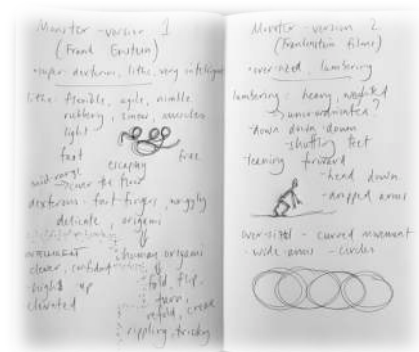 Monster - version 1
(Frank Einstein)
• super-dexterous, lithe, very intelligent
lithe: flexible, agile, nimble
rubbery, sinew, muscles
light
fast escaping free
mid-range
→ cover the floor
dexterous: fast fingers, wriggly
delicate, origami
INTELLIGENT
clever, confident
height up
elevated
human origami
fold, flip,
turn,
refold, crease
rippling, tricky
Monster - version 2
(Frankenstein films)
• over-sized, lumbering
lumbering: heavy, weighted
→ uncoordinated?
- down down down
- shuffling feet
- leaning forward
- head down
- dropped arms
over-sized - curved movement
- wide arms - circles